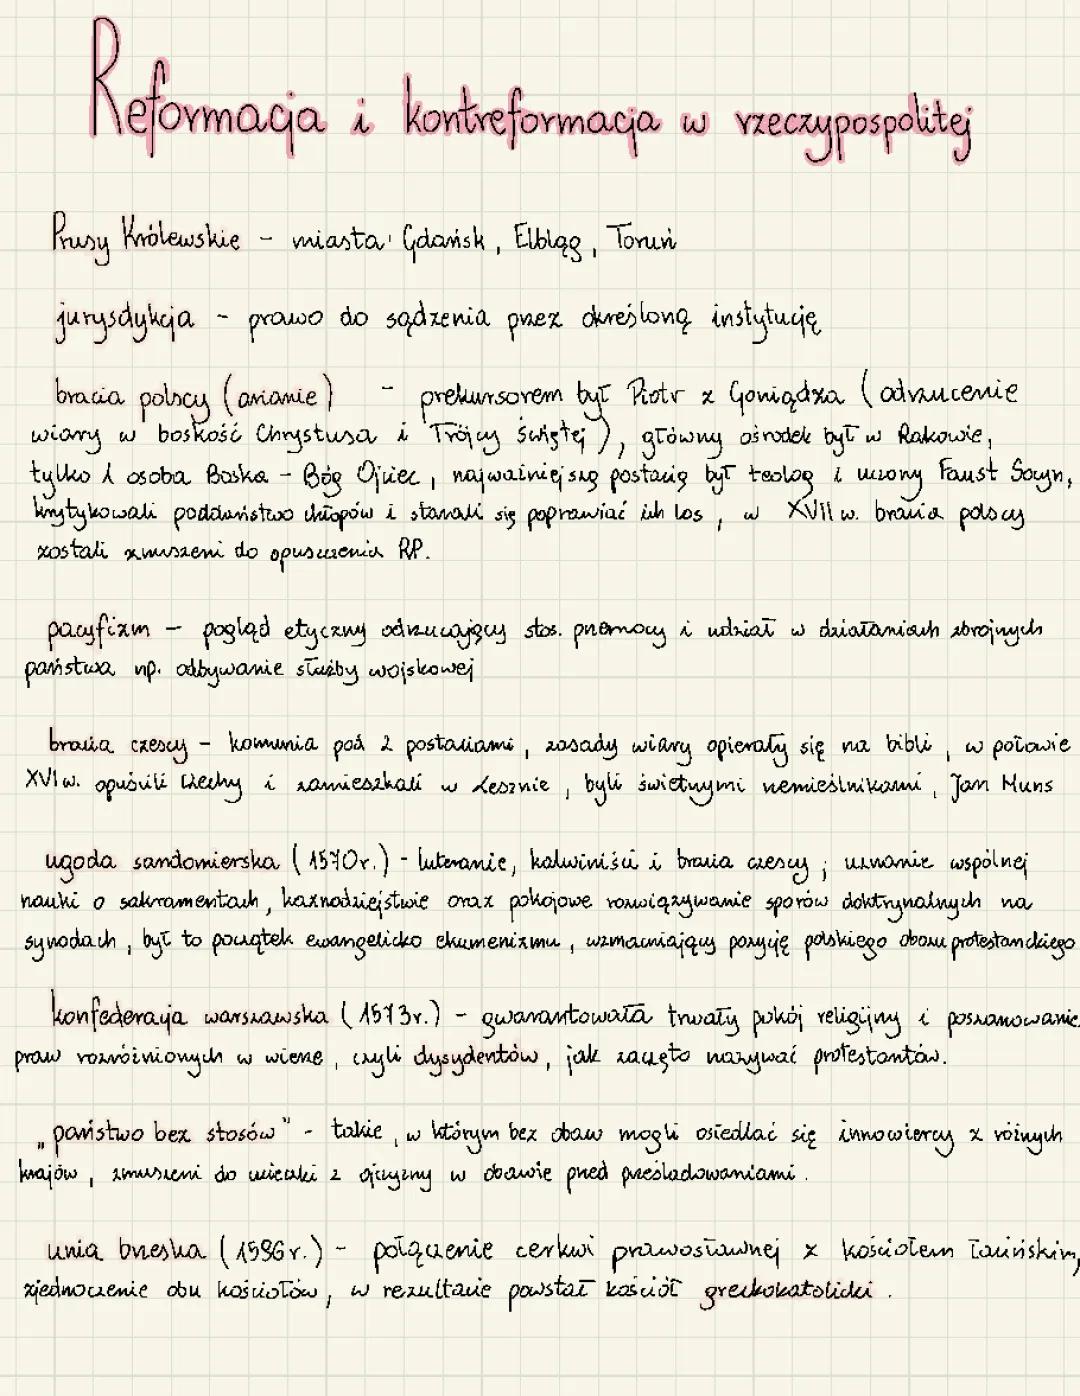 Reformacja i kontreformacja w rzeczypospolitej
Prusy Królewskie - miasta: Gdańsk, Elbląg, Toruń
jurysdykcja - prawo do sądzenia przez określoną instytucję
bracia polscy (arianie) - prekursorem był Piotr z Goniądza (odrzucenie
wiary w boskość Chrystusa i Trójcy Świętej), główny ośrodek był w Rakowie,
tylko 1 osoba Boska - Bóg Ojciec, najważniejszą postacią był teolog i uczony Faust Socyn,
krytykowali poddaństwo chłopów i starali się poprawiać ich los, w XVII w. bracia polscy
zostali zmuszeni do opuszczenia RP.
pacyfizm - pogląd etyczny odrzucający stos. przemocy i udział w działaniach zbrojnych
państwa np. odbywanie służby wojskowej
bracia czescy - komunia pod 2 postaciami, zasady wiary opierały się na bibli, w połowie
XVI w. opuścili Czechy i zamieszkali w Lesznie, byli świetnymi rzemieślnikami, Jan Muns
ugoda sandomierska (1570r.) - luteranie, kalwiniści i bracia czescy; uznanie wspólnej
nauki o sakramentach, kaznodziejstwie oraz pokojowe rozwiązywanie sporów doktrynalnych na
synodach, był to początek ewangelicko ekumenizmu, wzmacniający pozycję polskiego obozu protestanckiego
konfederacja warszawska (1573r.) - gwarantowała trwały pokój religijny i poszanowanie
praw rozróżnionych w wierze, czyli dysydentów, jak zaczęto nazywać protestantów.
„państwo bez stosów" - takie, w którym bez obaw mogli osiedlać się innowiercy z różnych
krajów, zmuszeni do ucieczki z ojczyzny w obawie przed prześladowaniami.
unia brzeska (1596r.) - połączenie cerkwi prawosławnej z kościołem łacińskim,
zjednoczenie obu kościołów, w rezultacie powstał kościół greckokatolicki.